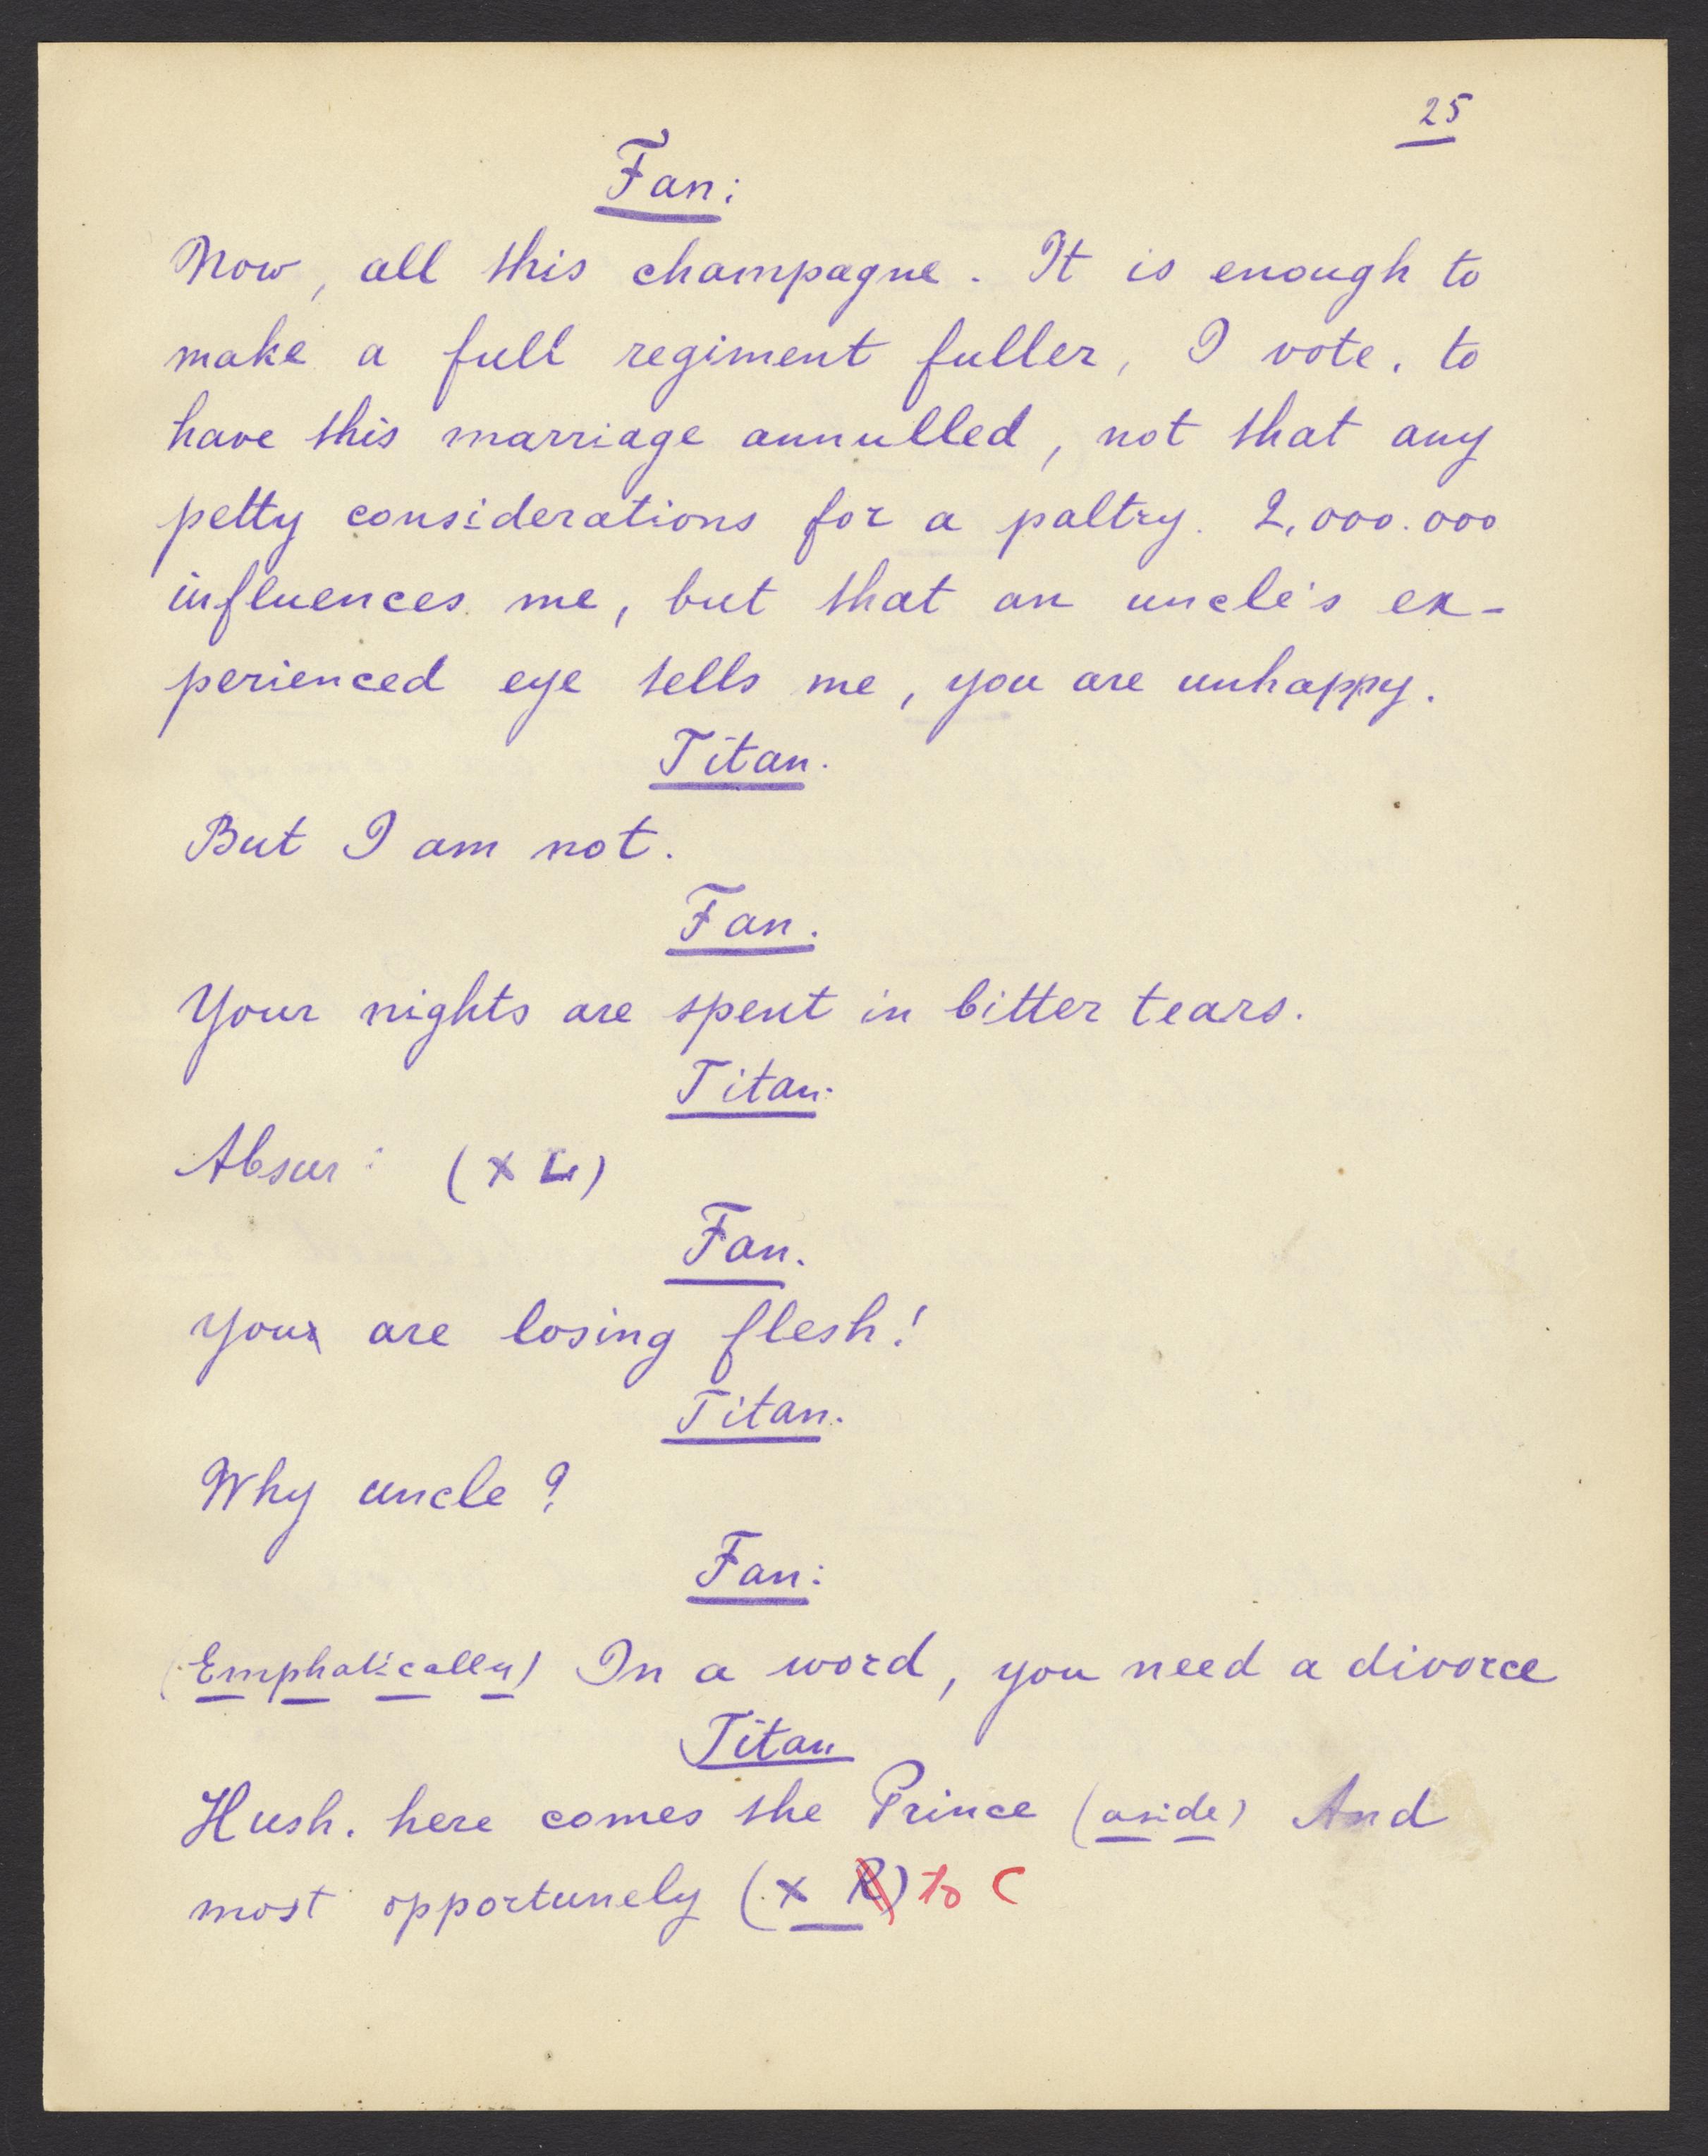 25
Fan:
Now, all this champagne. It is enough to
make a full regiment fuller, I vote, to
have this marriage annulled, not that any
petty considerations for a paltry. 2,000.000
influences me, but that an uncle's ex-
perienced eye tells me, you are unhappy.
Titan.
But I am not.
Fan.
Your nights are spent in bitter tears.
Titan:
Absur: (x L)
Fan.
You are losing flesh!
Titan.
Why uncle?
Fan:
(Emphatically) In a word, you need a divorce
Titan
Hush. here comes the Prince (aside) And
most opportunely (x R) to C